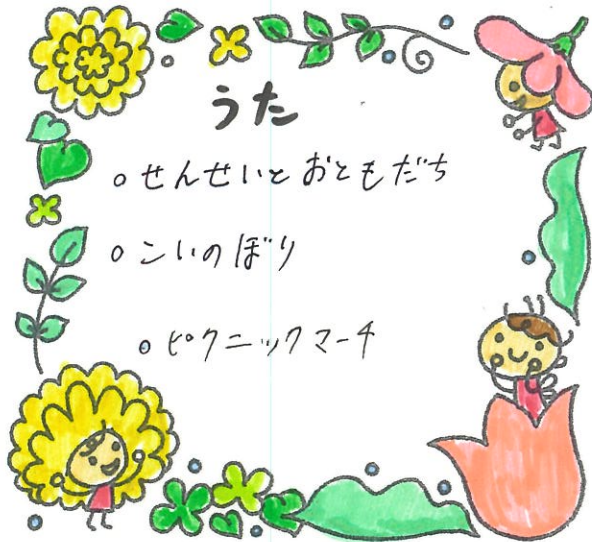 うた
○せんせいとおともだち
○こいのぼり
○ピクニックマーチ